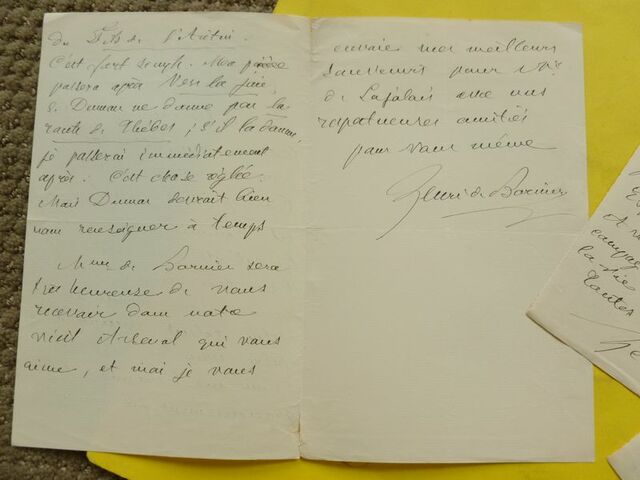 du Fils de l'Arétin.
C'est fort simple. Ma pièce
passera après Vers la joie,
si Dumas ne donne pas la
route de Thèbes ; s'il la donne,
je passerai immédiatement
après. C'est chose réglée.
Mais Dumas devrait bien
nous renseigner à temps
Mme de Bornier sera
très heureuse de vous
recevoir dans notre
vieil Arsenal qui vous
aime, et moi je vous
envoie mes meilleurs
souvenirs pour Mr.
de Lafalais avec nos
respectueuses amitiés
pour vous même
Henri de Bornier
campag
la vie
toutes